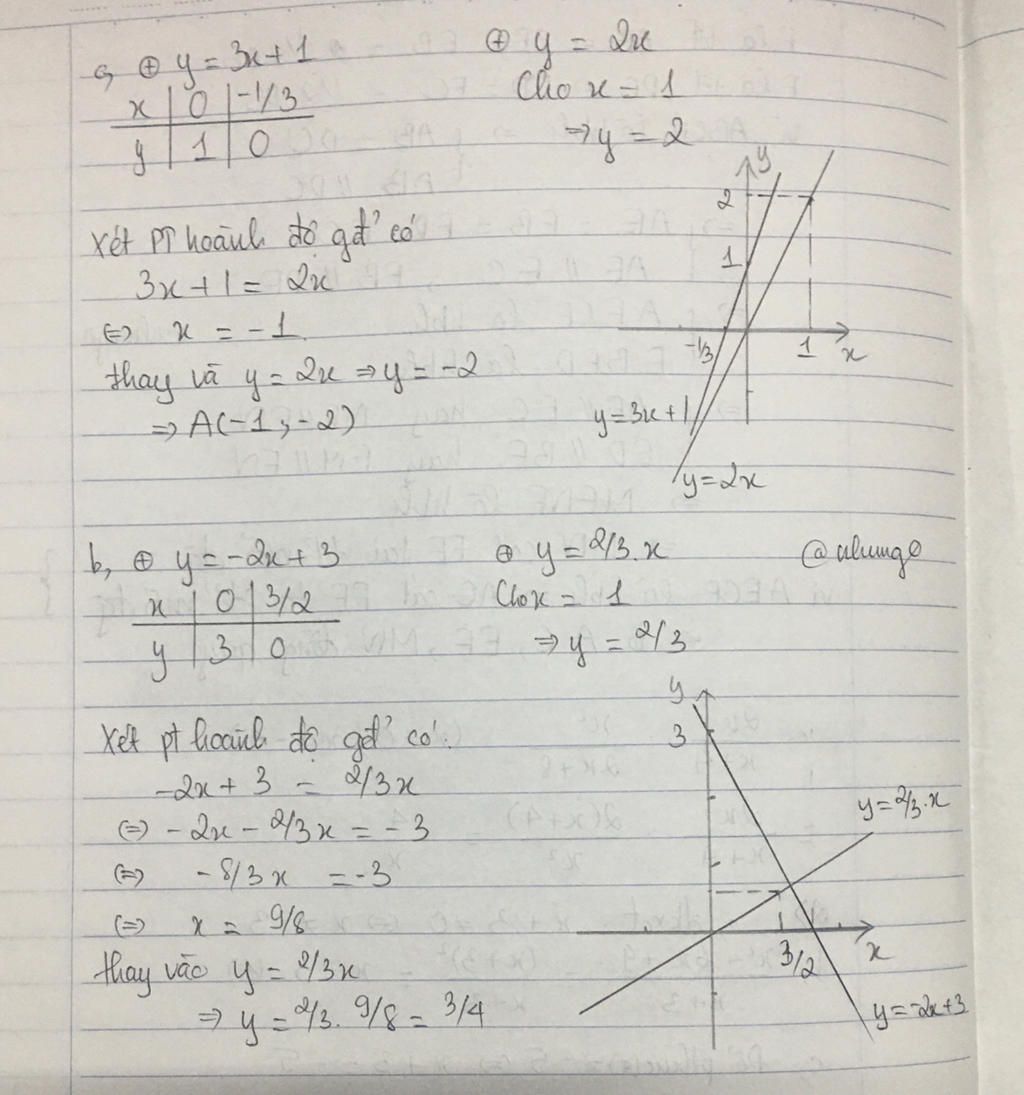 c, ⊕ y = 3x + 1
x | 0 | -1/3
y | 1 | 0
⊕ y = 2x
Cho x = 1
⇒ y = 2
Xét PT hoành độ gđ' có
3x + 1 = 2x
⇔ x = -1
thay và y = 2x ⇒ y = -2
⇒ A(-1; -2)
y
2
1
-1/3
1
x
y = 3x + 1
y = 2x
b, ⊕ y = -2x + 3
x | 0 | 3/2
y | 3 | 0
⊕ y = 2/3.x
Cho x = 1
⇒ y = 2/3
Xét pt hoành độ gđ' có:
-2x + 3 = 2/3x
⇔ -2x - 2/3x = -3
⇔ -8/3x = -3
⇔ x = 9/8
thay vào y = 2/3x
⇒ y = 2/3. 9/8 = 3/4
y
3
y = 2/3.x
3/2
x
y = -2x + 3